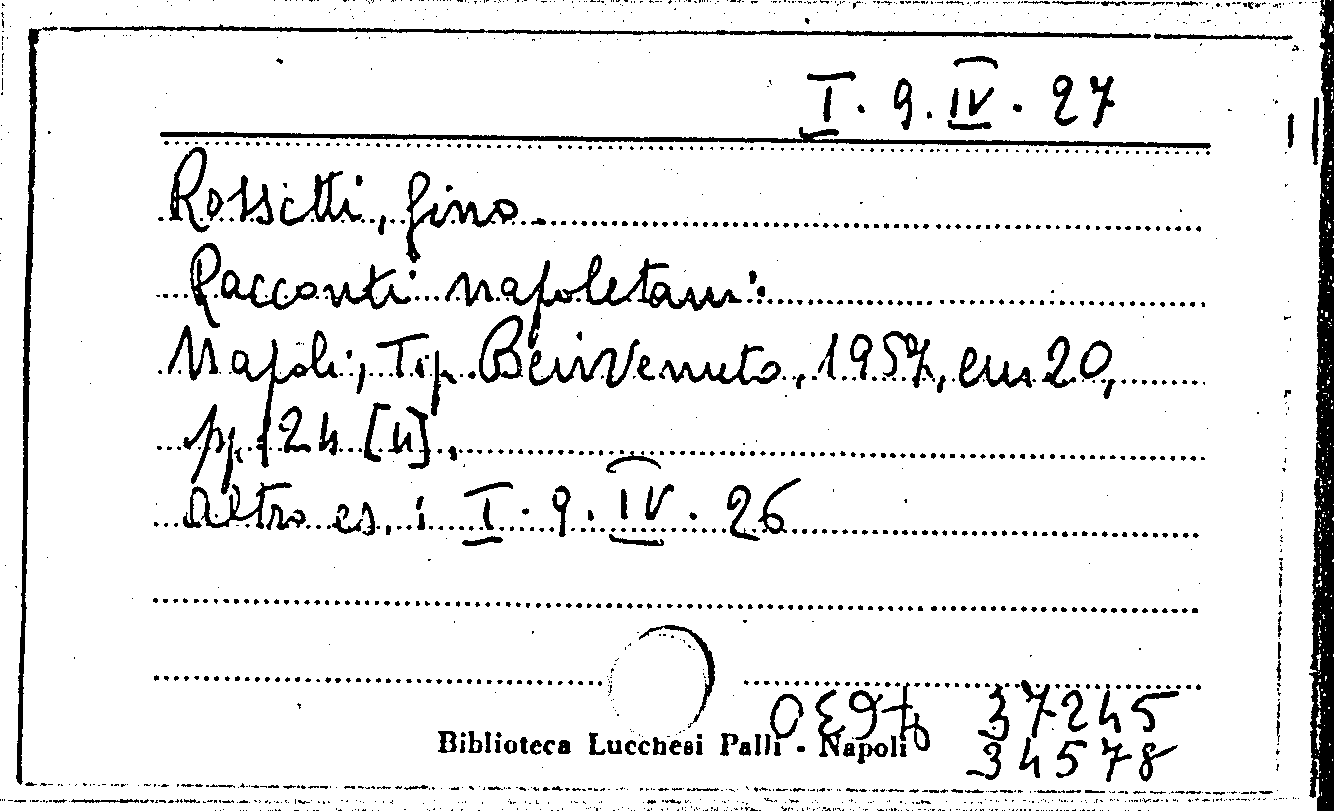 I. 9. IV. 27
Rossetti, Gino.
Racconti napoletani.
Napoli, Tip. Benvenuto, 1957, cm 20,
pp. 124 [4].
altro es.: I. 9. IV. 26
37245
Biblioteca Lucchesi Palli - Napoli
34578